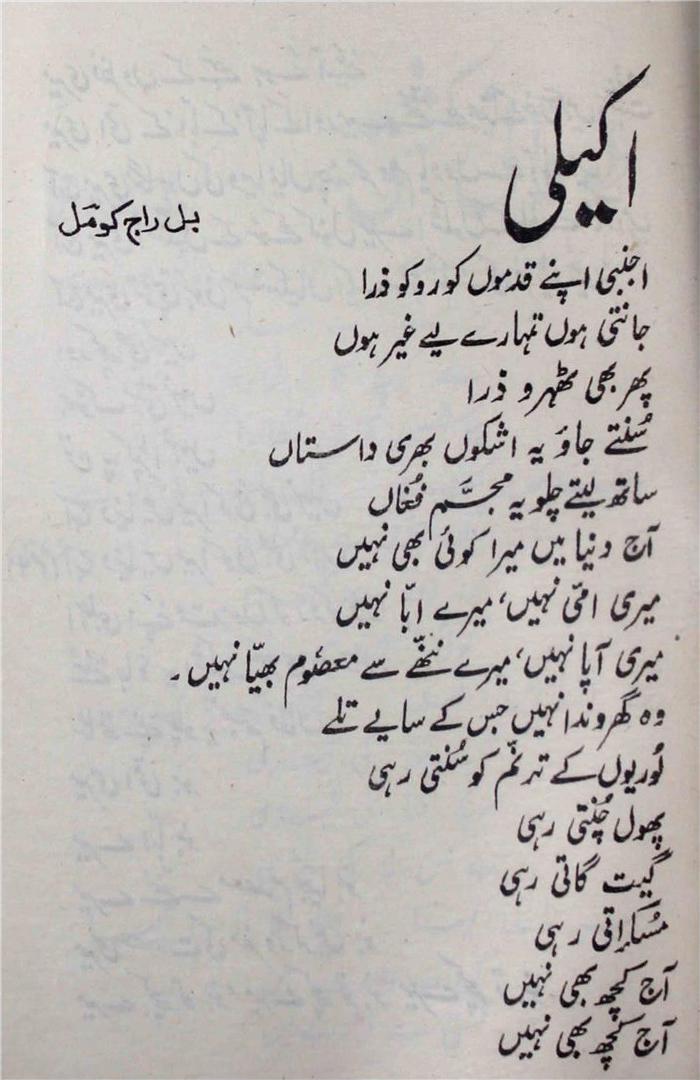 اکیلی
بل راج کومَل
اجنبی اپنے قدموں کو روکو ذرا
جانتی ہوں تمہارے لیے غیر ہوں
پھر بھی ٹھہرو ذرا
سُنتے جاؤ یہ اشکوں بھری داستاں
ساتھ لیتے چلو یہ مجسَّم فُغاں
آج دنیا میں میرا کوئی بھی نہیں
میری امّی نہیں، میرے ابّا نہیں
میری آپا نہیں، میرے ننھّے سے معصُوم بھیّا نہیں۔
وہ گھروندا نہیں جس کے سایے تلے
لُوریوں کے ترنّم کو سُنتی رہی
پھول چُنتی رہی
گیت گاتی رہی
مُسکراتی رہی
آج کچھ بھی نہیں
آج کچھ بھی نہیں